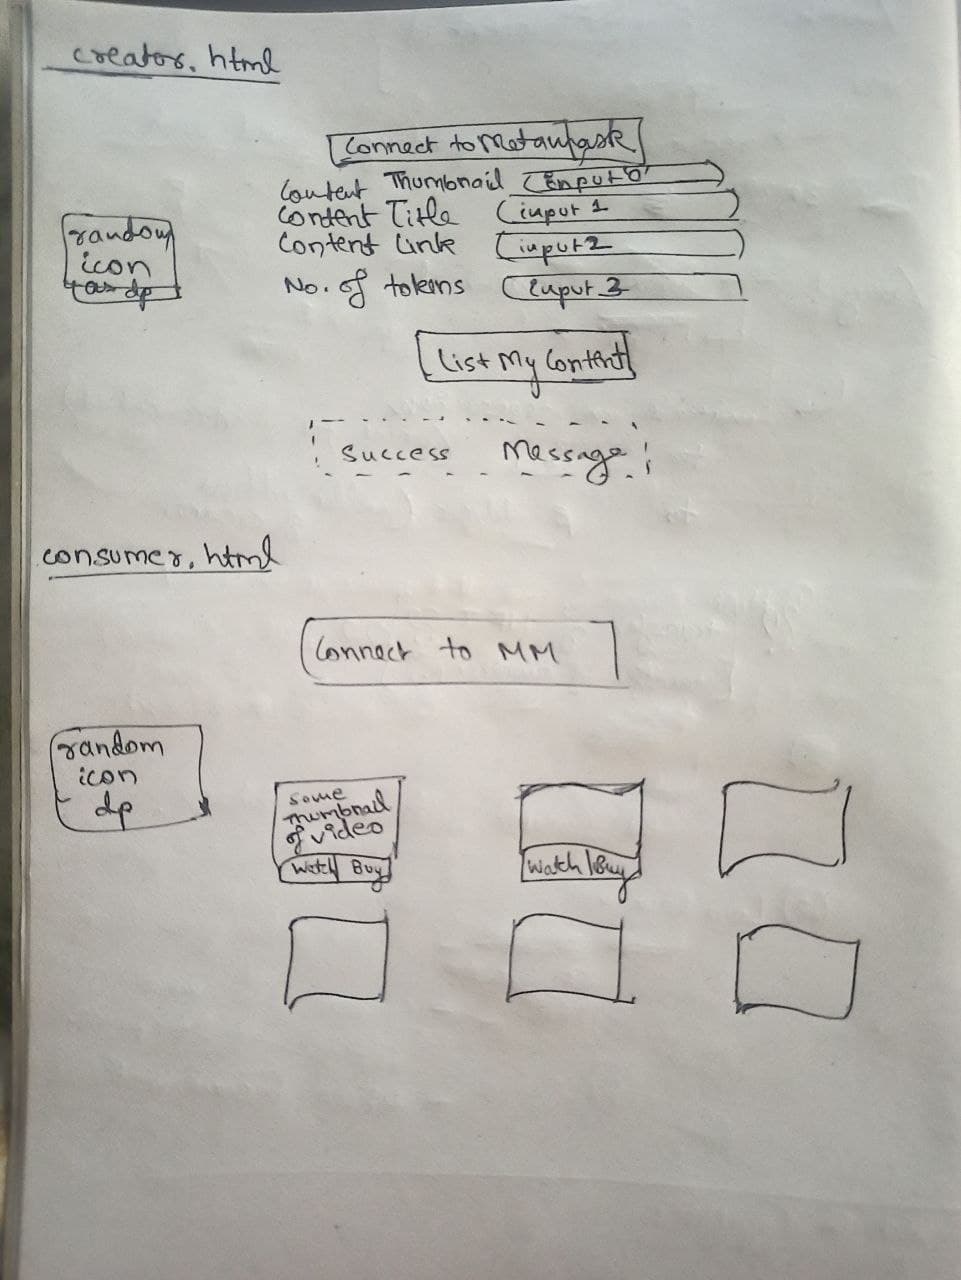 creator.html
Connect to Metamask
Content Thumbnail input 0
Content Title input 1
Content Link input 2
No. of tokens input 3
random
icon
as dp
List My Content
Success Message
consumer.html
Connect to MM
random
icon
dp
some
thumbnail
of video
Watch Buy
Watch Buy